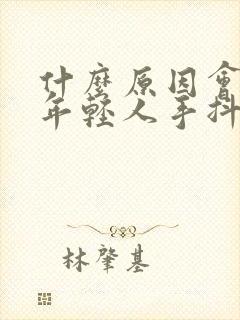 什麼原因會
年輕人手抖
林肇基